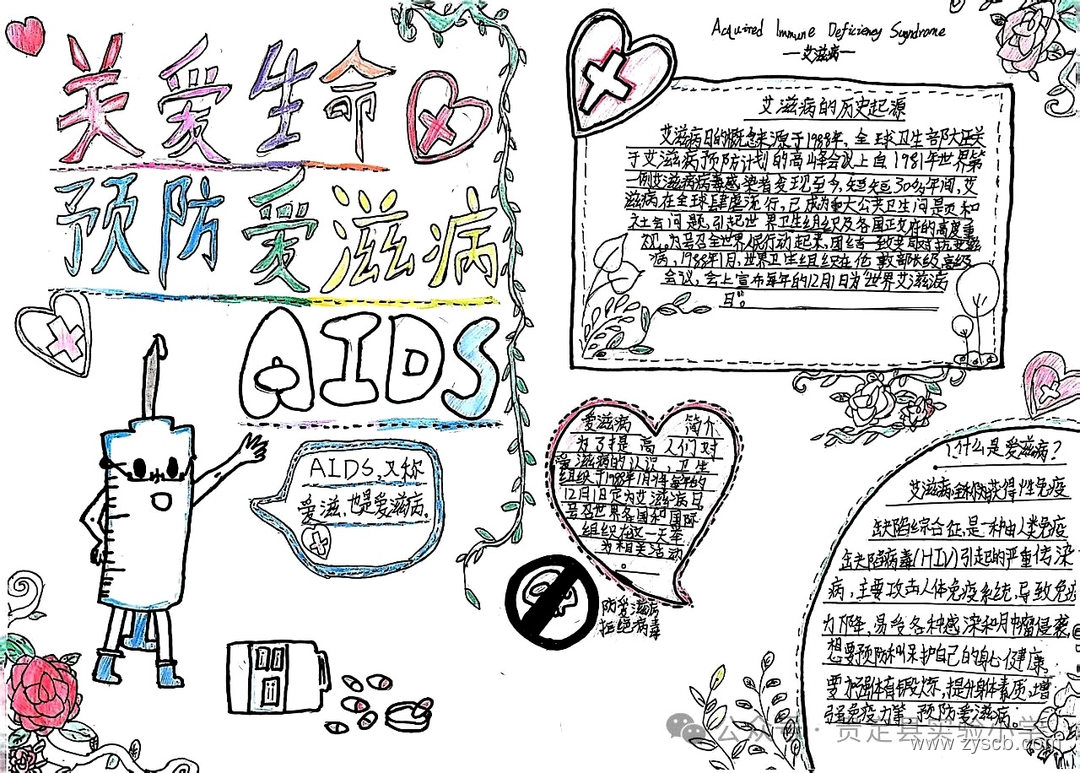 关爱生命
预防爱滋病
AIDS
AIDS,又称
爱滋,也是爱滋病。
Acquired Immune Deficiency Syndrome
—艾滋病—
艾滋病的历史起源
艾滋病日的概念来源于1988年,全球卫生部大臣关
于艾滋病预防计划的高峰会议上自1981年世界第
一例艾滋病病毒感染者发现至今,短短30多年间,艾
滋病在全球肆虐流行,已成为重大公共卫生问是页和
社会问题,引起世界卫生组织及各国正攵府的高度重
视,为号召全世界人民行动起来,团结一致
病,1988年1月,世界卫生组织在伦敦部长级高级
会议,会上宣布每年的12月1日为“世界艾滋病
日”。
爱滋病 简介
为了提高人们对
爱滋病的认识,卫生
组织于1988年1月将每年的
12月1日定为艾滋病日
号召世界各国和国际
组织在这一天举
办相关活动
。
防爱滋病
拒绝病毒
什么是爱滋病?
艾滋病全称为获得性免疫
缺陷综合征,是一种由人类免疫
缺陷病毒(HIV)引起的严重传染
病,主要攻击人体免疫系统,导致免疫
力下降,易受各种感染和肿瘤侵袭,
想要预防和保护自己的身心健康
要加强体育锻炼,提升身体素质,增
强免疫力等,预防爱滋病。
公众号·贵定县实验小学
www.zyscb.com